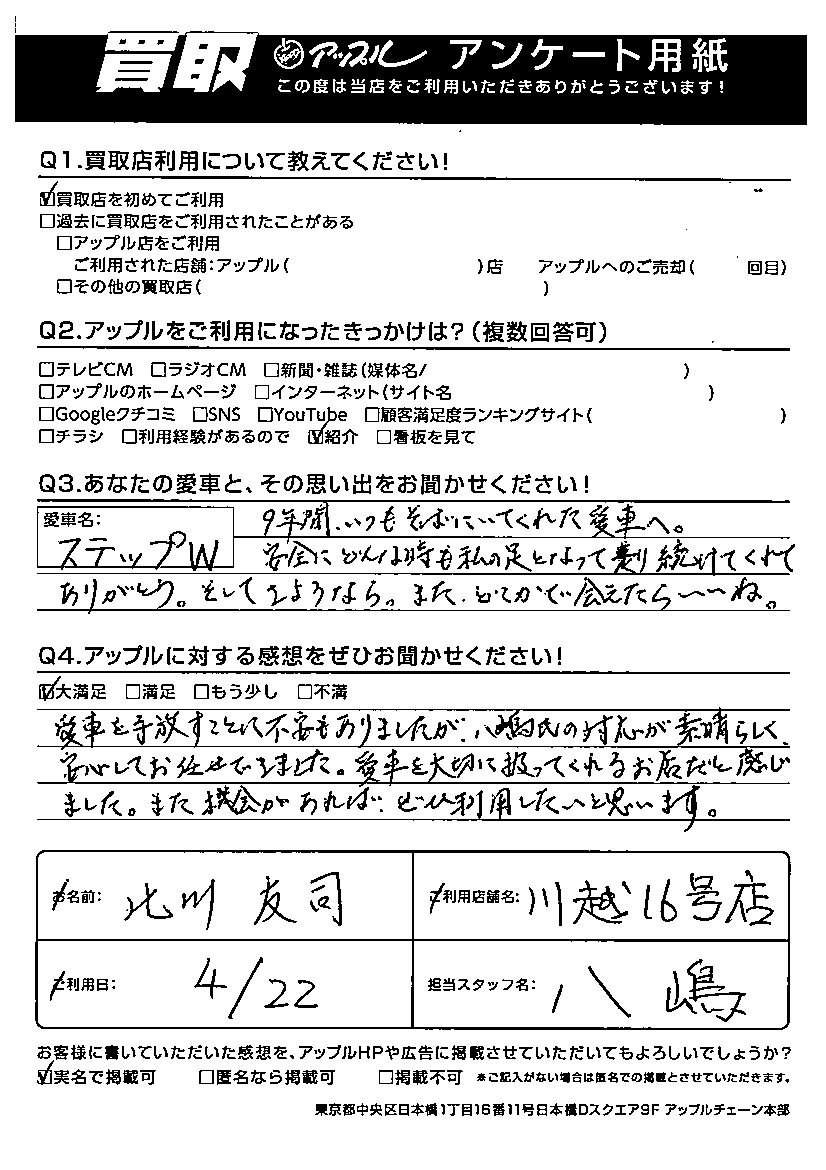 買取 アップル アンケート用紙
この度は当店をご利用いただきありがとうございます!
Q1.買取店利用について教えてください!
☑買取店を初めてご利用
□過去に買取店をご利用されたことがある
□アップル店をご利用
ご利用された店舗:アップル( )店 アップルへのご売却( 回目)
□その他の買取店( )
Q2.アップルをご利用になったきっかけは?(複数回答可)
□テレビCM □ラジオCM □新聞・雑誌(媒体名/ )
□アップルのホームページ □インターネット(サイト名 )
□Googleクチコミ □SNS □YouTube □顧客満足度ランキングサイト( )
□チラシ □利用経験があるので ☑紹介 □看板を見て
Q3.あなたの愛車と、その思い出をお聞かせください!
愛車名:
ステップW
9年間、いつもそばにいてくれた愛車へ。
安全にどんな時も私の足となって走り続けてくれて
ありがとう。そしてさようなら。また、どこかで会えたらいいね。
Q4.アップルに対する感想をぜひお聞かせください!
☑大満足 □満足 □もう少し □不満
愛車を手放すことに不安もありましたが、八嶋氏の対応が素晴らしく、
安心してお任せできました。愛車を大切に扱ってくれるお店だと感じ
ました。また機会があれば、ぜひ利用したいと思います。
お名前: 北川 友司 ご利用店舗名: 川越16号店
ご利用日: 4/22 担当スタッフ名: 八嶋
お客様に書いていただいた感想を、アップルHPや広告に掲載させていただいてもよろしいでしょうか?
☑実名で掲載可 □匿名なら掲載可 □掲載不可 ※ご記入がない場合は匿名での掲載とさせていただきます。
東京都中央区日本橋1丁目16番11号日本橋Dスクエア9F アップルチェーン本部